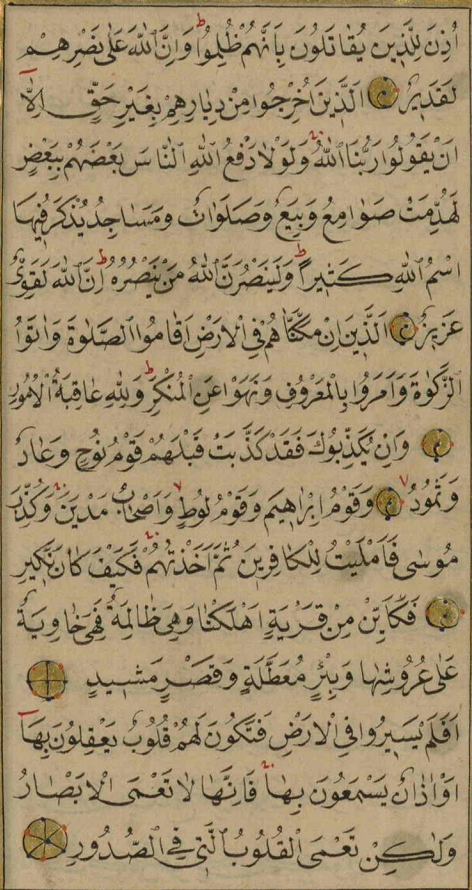 اُذِنَ لِلَّذِينَ يُقَاتَلُونَ بِاَنَّهُمْ ظُلِمُوا وَاِنَّ اللّٰهَ عَلٰى نَصْرِهِمْ
لَقَدِيرٌ اَلَّذِينَ اُخْرِجُوا مِنْ دِيَارِهِمْ بِغَيْرِ حَقٍّ اِلَّا
اَنْ يَقُولُوا رَبُّنَا اللّٰهُ وَلَوْلَا دَفْعُ اللّٰهِ النَّاسَ بَعْضَهُمْ بِبَعْضٍ
لَهُدِّمَتْ صَوَامِعُ وَبِيَعٌ وَصَلَوَاتٌ وَمَسَاجِدُ يُذْكَرُ فِيهَا
اسْمُ اللّٰهِ كَثِيرًا وَلَيَنْصُرَنَّ اللّٰهُ مَنْ يَنْصُرُهُ اِنَّ اللّٰهَ لَقَوِيٌّ
عَزِيزٌ اَلَّذِينَ اِنْ مَكَّنَّاهُمْ فِي الْاَرْضِ اَقَامُوا الصَّلٰوةَ وَاٰتَوُا
الزَّكٰوةَ وَاَمَرُوا بِالْمَعْرُوفِ وَنَهَوْا عَنِ الْمُنْكَرِ وَلِلّٰهِ عَاقِبَةُ الْاُمُورِ
وَاِنْ يُكَذِّبُوكَ فَقَدْ كَذَّبَتْ قَبْلَهُمْ قَوْمُ نُوحٍ وَعَادٌ
وَثَمُودُ وَقَوْمُ اِبْرٰاهِيمَ وَقَوْمُ لُوطٍ وَاَصْحَابُ مَدْيَنَ وَكُذِّبَ
مُوسٰى فَاَمْلَيْتُ لِلْكَافِرِينَ ثُمَّ اَخَذْتُهُمْ فَكَيْفَ كَانَ نَكِيرِ
فَكَاَيِّنْ مِنْ قَرْيَةٍ اَهْلَكْنَاهَا وَهِيَ ظَالِمَةٌ فَهِيَ خَاوِيَةٌ
عَلٰى عُرُوشِهَا وَبِئْرٍ مُعَطَّلَةٍ وَقَصْرٍ مَشِيدٍ
اَفَلَمْ يَسِيرُوا فِي الْاَرْضِ فَتَكُونَ لَهُمْ قُلُوبٌ يَعْقِلُونَ بِهَا
اَوْ اٰذَانٌ يَسْمَعُونَ بِهَا فَاِنَّهَا لَا تَعْمَى الْاَبْصَارُ
وَلٰكِنْ تَعْمَى الْقُلُوبُ الَّتِي فِي الصُّدُورِ